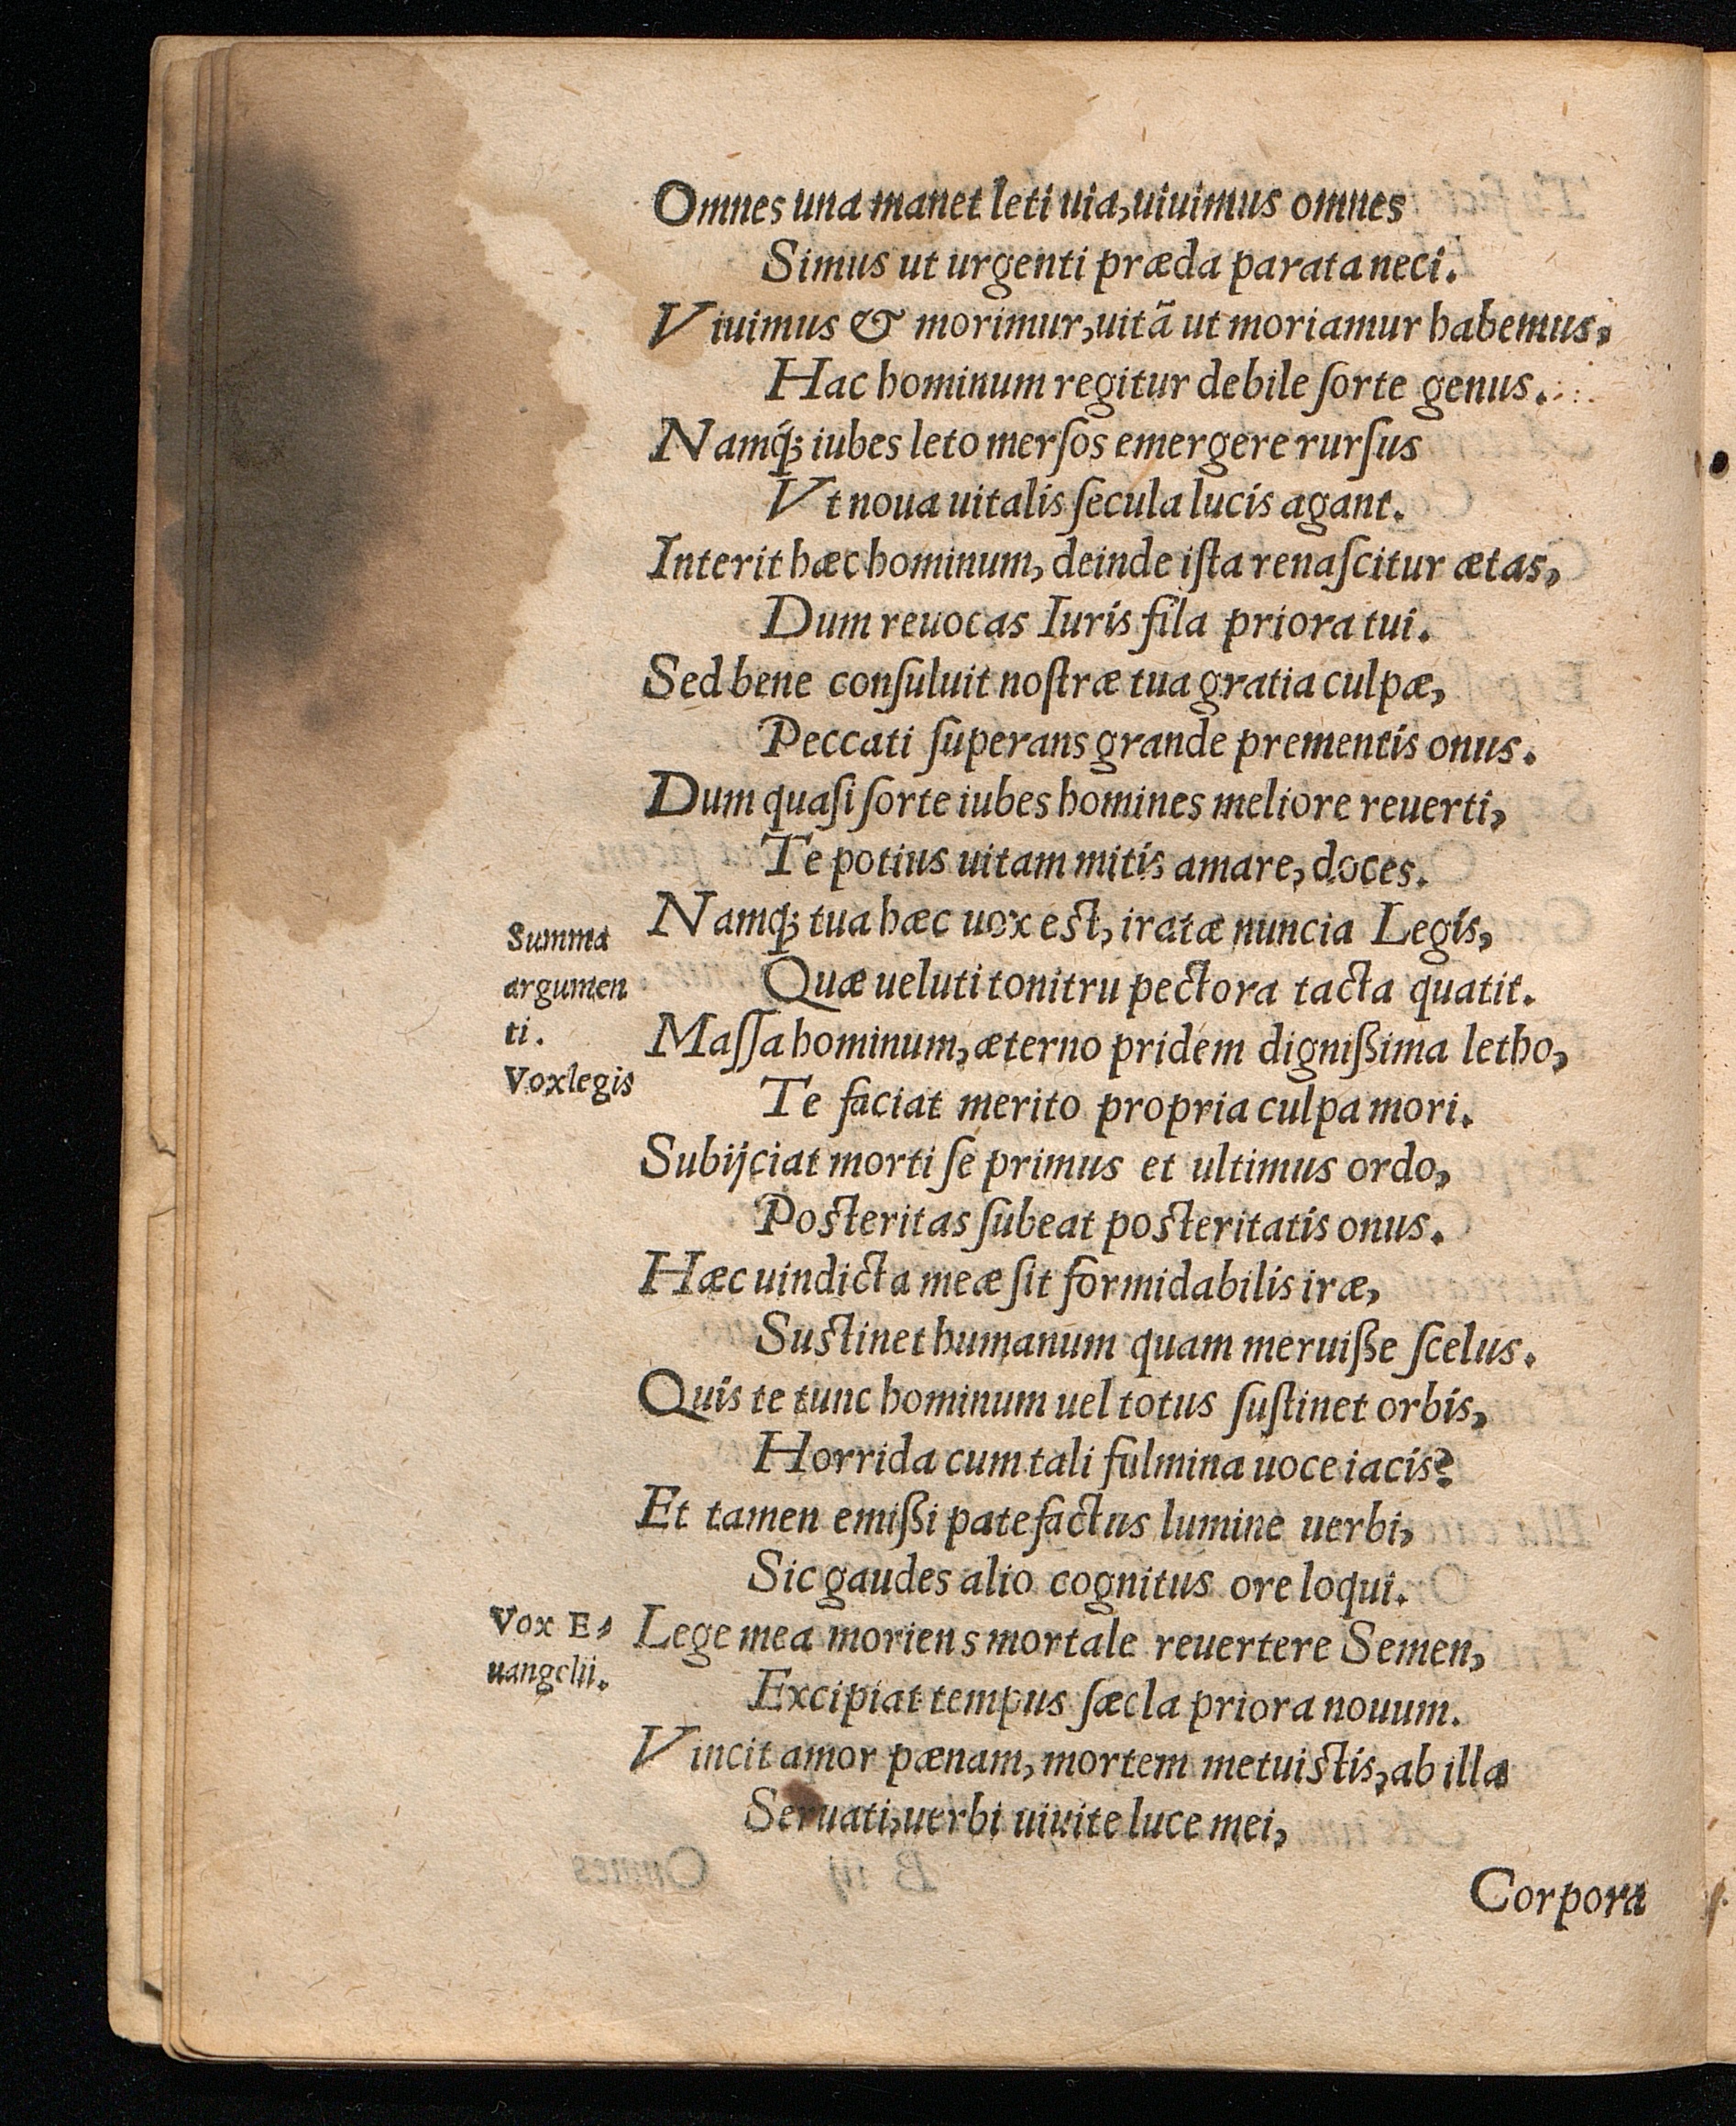 Omnes una manet leti uia, uiuimus omnes
Simus ut urgenti præda parata neci.
Viuimus & morimur, uitã ut moriamur habemus,
Hac hominum regitur debile ſorte genus.
Namq́; iubes leto merſos emergere rurſus
Vt noua uitalis ſecula lucis agant.
Interit hæc hominum, deinde iſta renaſcitur ætas,
Dum reuocas Iuris fila priora tui.
Sed bene conſuluit noſtræ tua gratia culpæ,
Peccati ſuperans grande prementis onus.
Dum quaſi ſorte iubes homines meliore reuerti,
Te potius uitam mitis amare, doces.
Namq́; tua hæc uox eſt, iratæ nuncia Legis,
Summa
argumen
ti.
Vox legis
Quæ ueluti tonitru pectora tacta quatit.
Maſſa hominum, æterno pridem dignißima letho,
Te faciat merito propria culpa mori.
Subijciat morti ſe primus et ultimus ordo,
Poſteritas ſubeat poſteritatis onus.
Hæc uindicta meæ ſit formidabilis iræ,
Suſtinet humanum quam meruiße ſcelus.
Quis te tunc hominum uel totus ſuſtinet orbis,
Horrida cum tali fulmina uoce iacis?
Et tamen emißi patefactus lumine uerbi,
Sic gaudes alio cognitus ore loqui.
Vox E⸗
uangelii.
Lege mea moriens mortale reuertere Semen,
Excipiat tempus ſæcla priora nouum.
Vincit amor pænam, mortem metuiſtis, ab illa
Seruati, uerbi uiuite luce mei,
Corpora